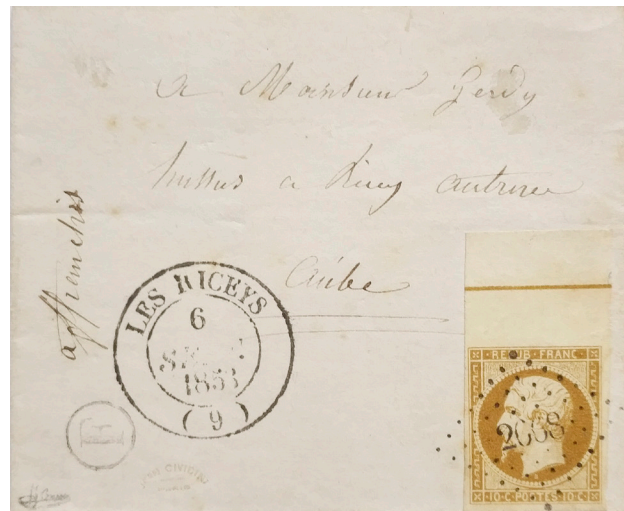 a Monsieur Gerdy
huissier a Ricey
Aube
affranchir
LES RICEYS
6
SEPT.
1853
(9)
REPUB. FRANC.
2668
10·C·POSTES·10·C